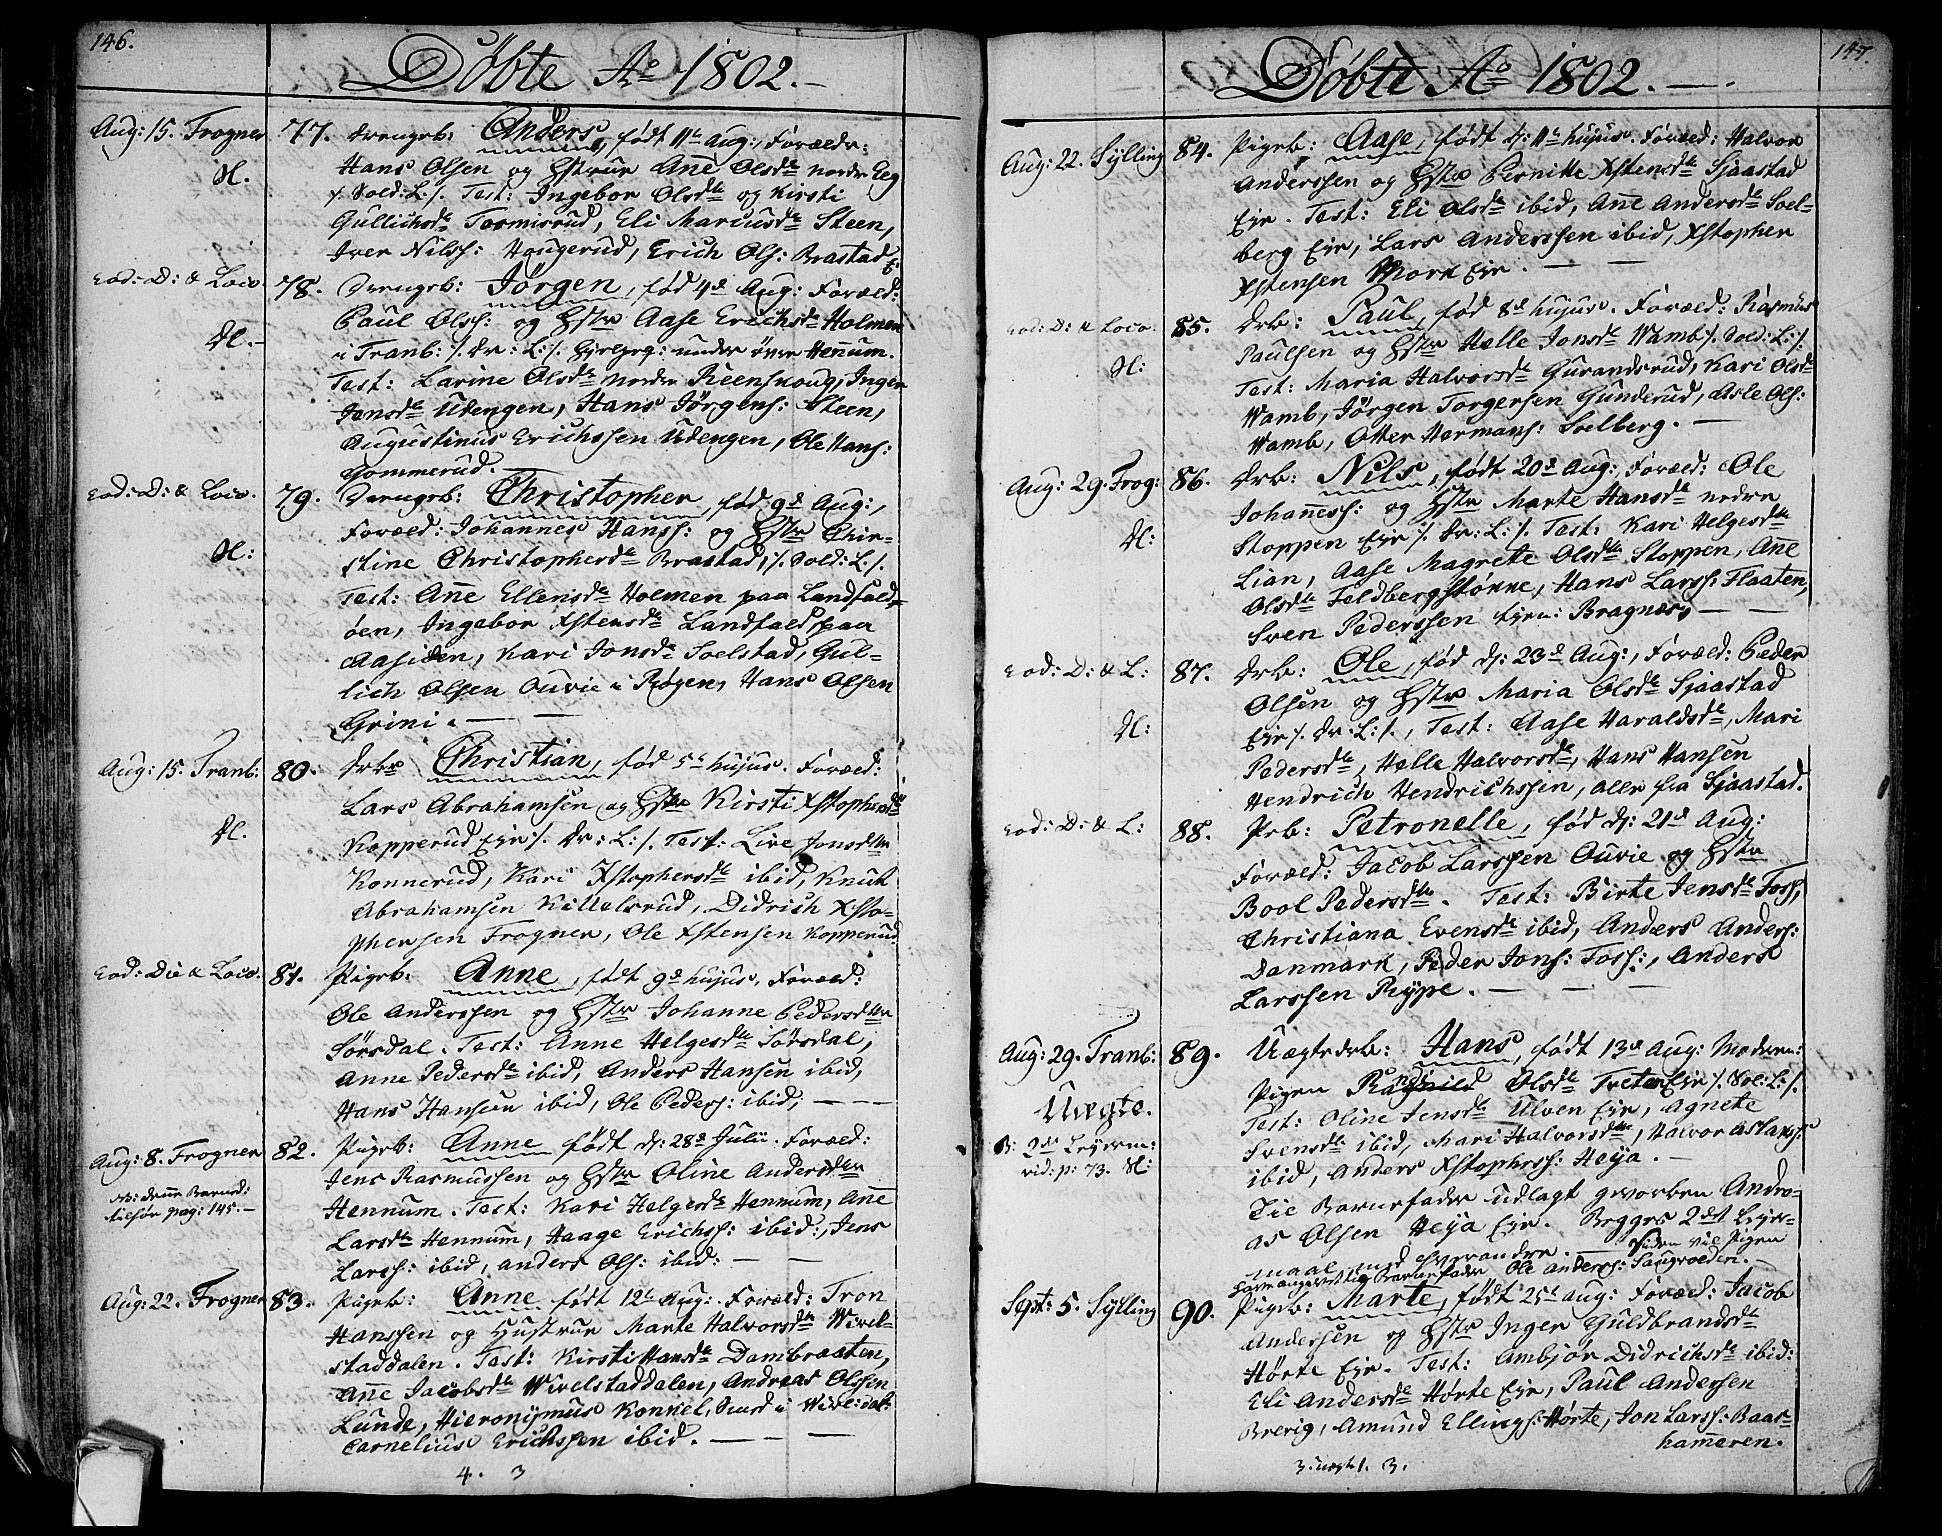 146.
Döbte Aº 1802.
Aug: 15. Frogner
H.
77. Drengeb: Anders, född 11te Aug: Forældr:
Hans Olsen og Hstrue Ane Olsdtr nordre Eeg
/. Sold: L: /. Test: Ingebor Olsdtr og Kirsti
Gullichsdtr Tormisrud, Eli Mariusdtr Steen,
Iver Nilss: Haugerud, Erich Ols: Brastad E:
Eod: D: & Loco
H.
78. Drengeb: Jörgen, föd 4de Aug: Foræld:
Paul Olss: og Hstr Aase Erichsdtr Holmen
i Tranb: /. Dr: L: /. under övre Hennum.
Test: Larine Olsdtr nordre Reenskoug, Inger
Jensdtr Udengen, Hans Jörgens: Steen,
Augustinus Erichssen Udengen, Ole Hans:
Gommerud.
Eod: D: & Loco.
H:
79. Drengeb: Christopher, föd 9de Aug:,
Foræld: Johannes Hanss: og Hstr Chir-
stine Christopherdtr Brastad, /. Sold: L: /.
Test: Añe Ellensdtr Holmen paa Landfald-
öen, Ingebor Xstensdtr Landfald, paa
Aasiden, Kari Jonsdtr Solstad, Gul-
lich Olsen Ouvie i Rögen, Hans Olsen
Grini.
Aug: 15. Tranb:
H.
80. Drb: Christian, föd 5te hujus. Foræld:
Lars Abrahamsen og Hstr Kirsti Xstophersdtr
Kopperud Eje /. Dr: L: /. Test: Live Jonsdtr
Konnerud, Kari Xstophersdtr ibid, Knut
Abrahamsen Kittelsrud, Didrich Xsto-
phersen Frogner, Ole Xstensen Kopperud
Eod: Die & Loco.
81. Pigeb: Anne, födt 9de hujus. Foræld:
Ole Anderssen og Hstr Johanne Pedersdtr
Sörsdal. Test: Anne Helgesdtr Sörsdal,
Anne Pedersdtr ibid, Anders Hansen ibid,
Hans Hansen ibid, Ole Peders: ibid,
Aug: 8. Frogner
NB: denne Barnets
pag: 145.
82. Pigeb: Anne födt d: 28de Julii. Foræld:
Jens Rasmussen og Hstr Oline Andersdtr
Hennum. Test: Kari Helgesdtr Hennum, Añe
Larsdtr Hennum, Haage Erichss: ibid:, Jens
Larss: ibid, Anders Ols: ibid:
Aug: 22. Frogner
83. Pigeb: Anne födt 12te Aug: Foræld: Tron
Hanssen og Hustrue Marte Halvorsdtr Wivel-
staddalen. Test: Kirsti Hansdtr Dambraaten,
Añe Jacobsdtr Wivelstaddalen, Andreas Olssen
Lunde, Hieronymus Konkel, Smed i Wivels: dal
Cornelius Erichssen ibid.
4. 3
147.
Döbte Aº 1802.
Aug: 22. Sylling
84. Pigeb: Aase, född d: 11te hujus. Foræld: Halvor
Anderssen og Hstr Pernille Xstensdtr Sjaastad
Eje. Test: Eli Olsdtr ibid, Añe Andersdtr Soel-
berg Eje, Lars Anderssen ibid, Xstopher
Xstensen Mork Eje.
Eod: D: & Loco.
H:
85. Drb: Paul, föd 8de hujus. Foræld: Rasmus
Paulsen og Hstr Helle Jonsdtr Wamb /. Sold: L: /.
Test: Maria Halvorsdtr Gurandsrud, Kari Olsdtr
Wamb, Jörgen Torgersen Gunderud, Asle Ols:
Wamb, Otter Hermans: Svelberg.
Aug: 29. Frog:
H:
86. Drb: Nils, födt 20de Aug: Foræld: Ole
Johañess: og Hstr Marte Hansdtr nedre
Stoppen Eje /. Dr: L: /. Test: Kari Helgesdtr
Lian, Aase Magrete Olsdtr Stoppen, Añe
Olsdtr Feldbergstönne, Hans Larss: Flaaten,
Sven Pederssen Bragnæs,
Eod: D: & L:
H:
87. Drb: Ole, föd d: 23de Aug:, Foræld: Peder
Olsen og Hstr Maria Olsdtr Sjaastad
Eje /. Dr: L: /., Test: Aase Haraldsdtr, Mari
Pedersdtr, Helle Halvorsdtr, Hans Hansen
Hendrich Hendrichssen, alle fra Sjaastad.
Eod: D: & L:
88. Prb: Petronelle, föd d: 21de Aug:
Foræld: Jacob Larssen Ouvie og Hstr
Bool Pedersdtr. Test: Birte Jensdtr Foss,
Christiana Evensdtr ibid, Anders Anders:
Danmark, Peder Jons: Foss:, Anders
Larssen Rype.
Aug: 29. Tranb:
Uægte.
B: 2det Leyerm:
vid: p: 73. H:
89. Uægte drb: Hans, födt 13de Aug: Moderen:
Pigen Ragnild Olsdtr Treten Eje /. Sol: L: /.
Test: Oline Jensdtr Ulven Eje, Agnete
Svensdtr ibid, Mari Halvorsdtr, Halvor Aslaks:
ibid, Anders Xstophss: Heya.
Til Barnefader udlagt gworben Andre-
as Olsen Heya Eje. Begges 2det Leyer-
maal med hverandre. Siden vil Pigen
have angivet til Barnefader Ole Anderss: Saugroeden.
Sept: 5. Sylling
90. Pigeb: Marte, födt 25te Aug: Foræld: Jacob
Andersen og Hstr Inger Guldbrandsdtr
Hörte Eje. Test: Ambjor Didrichsdtr ibid:
Eli Andersdtr Hörte Eje, Paul Andersen
Brerig, Amund Ellings: Hörte, Jon Larss: Baas-
hameren.
3. uægt 1. 3.